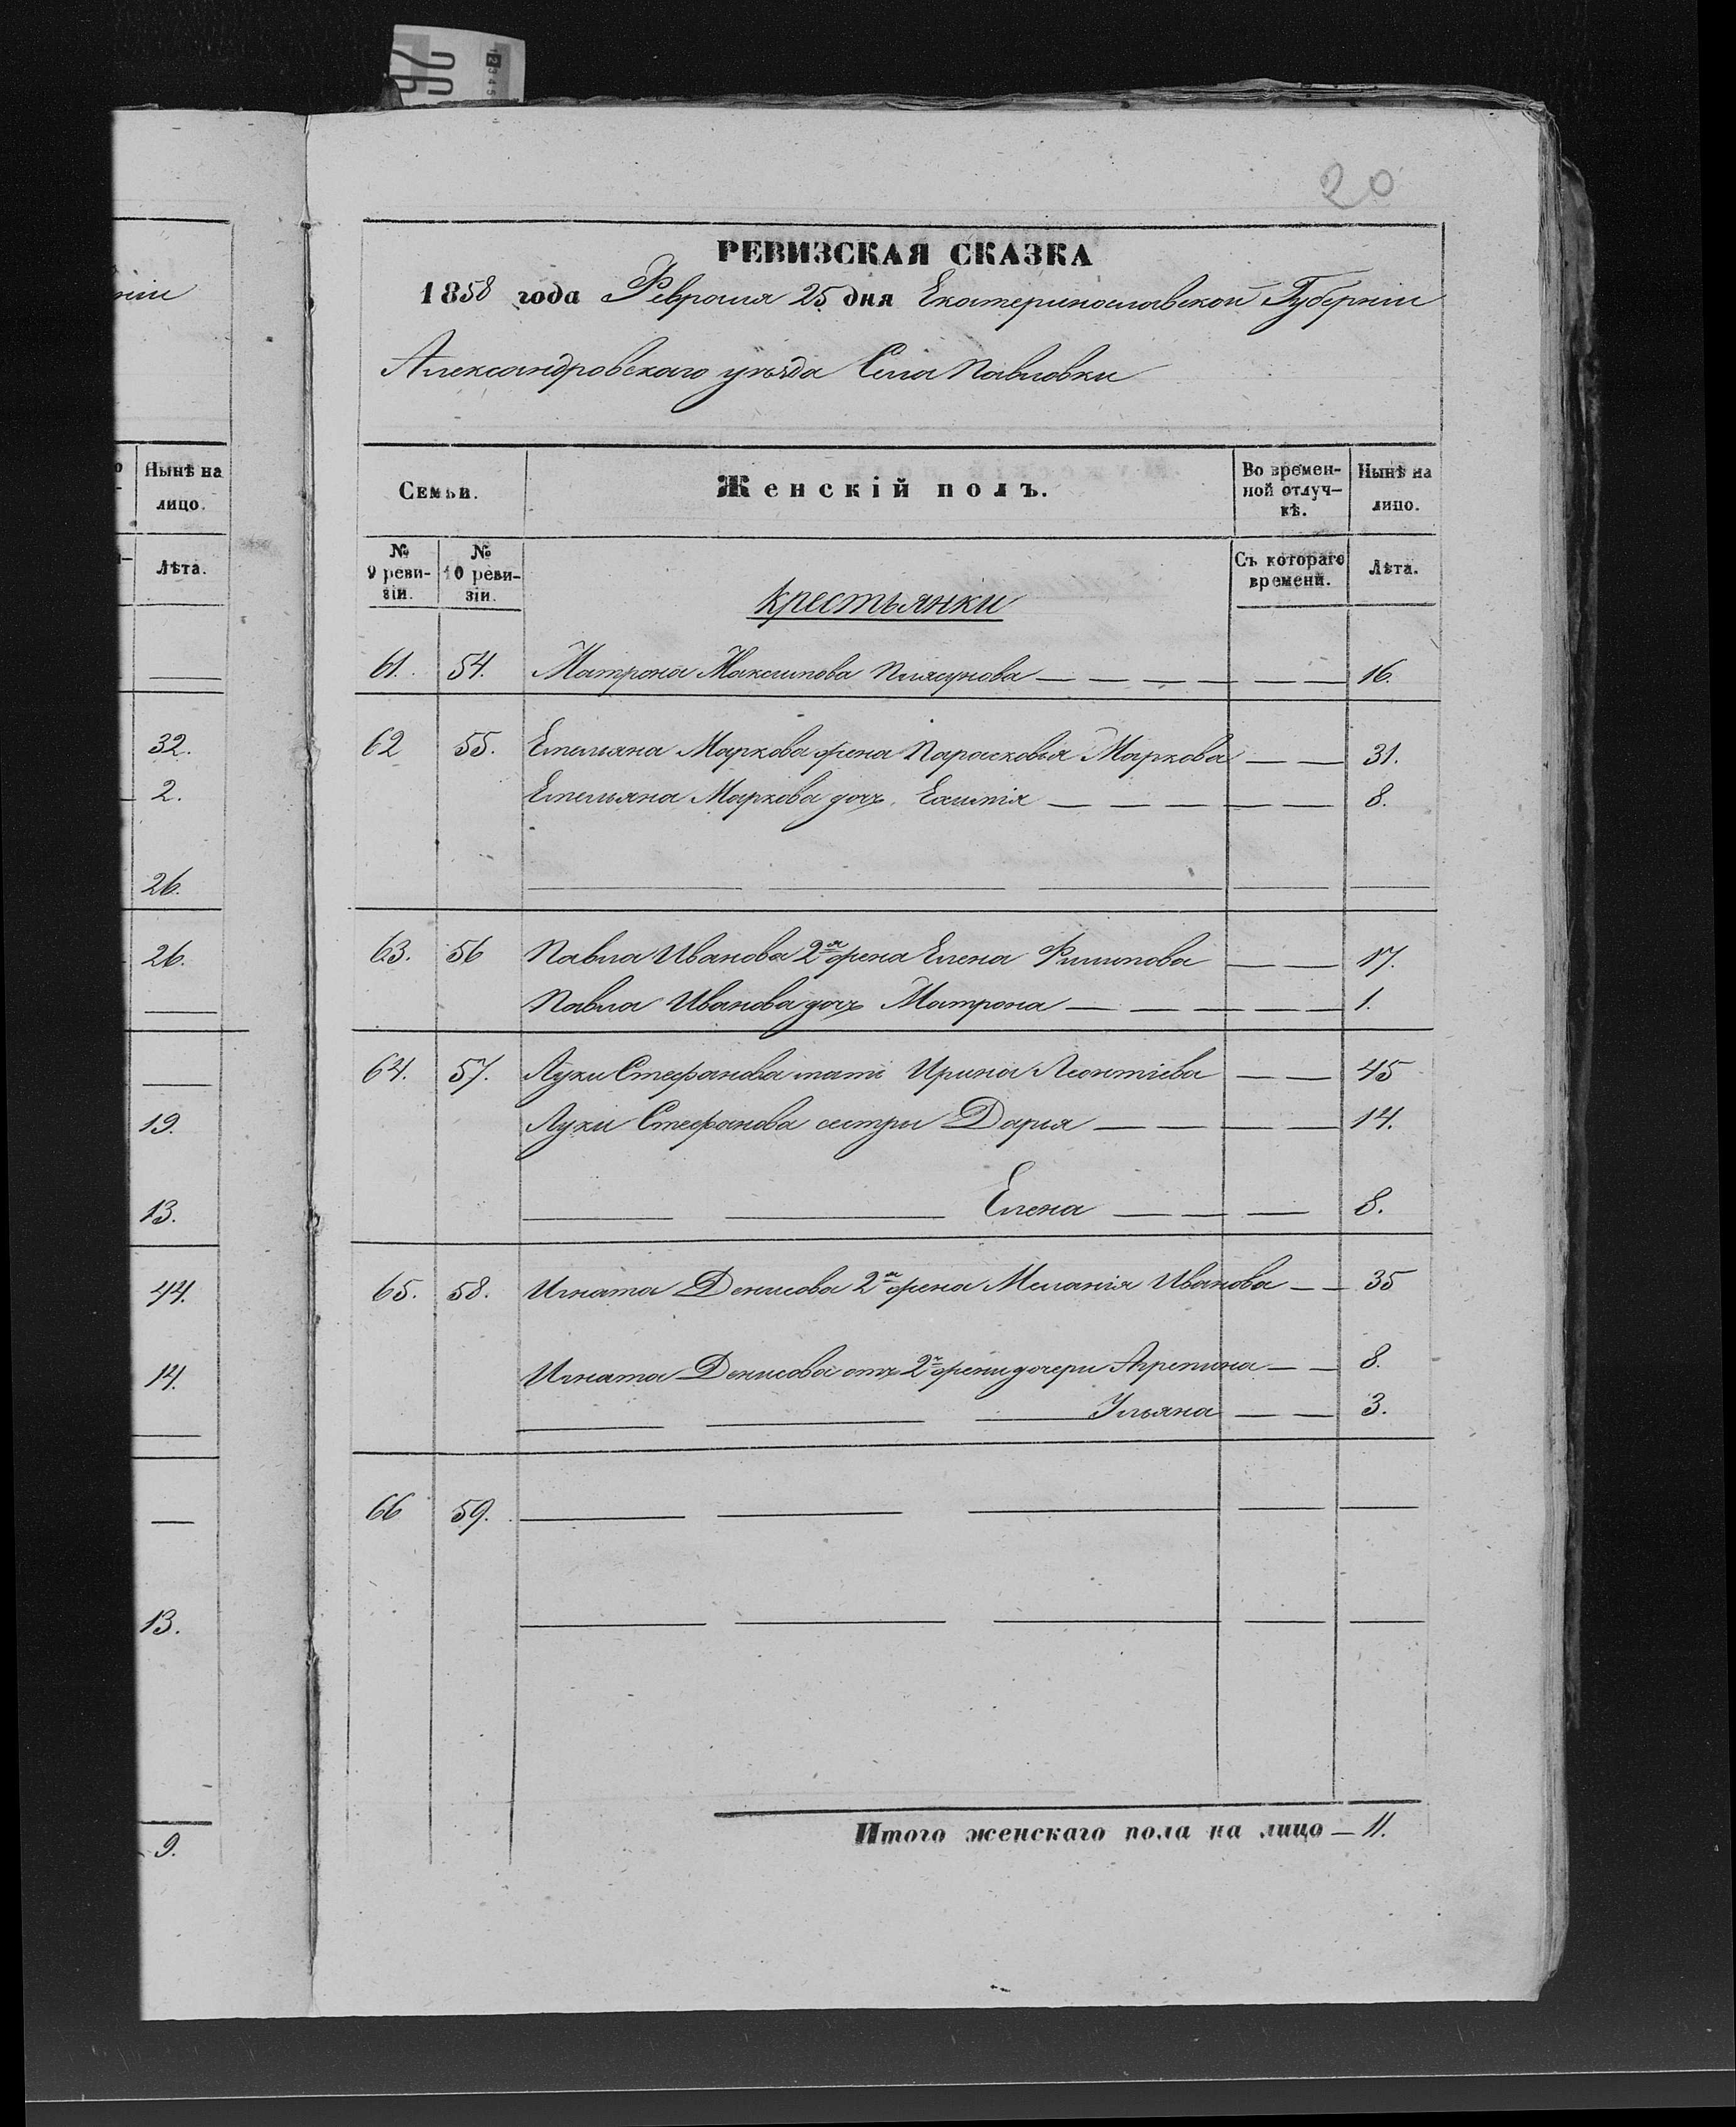 20
РЕВИЗСКАЯ СКАЗКА
1858 года Февраля 25 дня Екатеринославской Губерніи
Александровскаго уѣзда Села Павловки
Семьи. Женскій полъ. Во времен- Нынѣ на
ной отлуч- лицо.
кѣ.
№ № Съ котораго Лѣта.
9 реви- 10 реви- времени.
зіи. зіи.
Крестьянки
61. 54. Матрона Максимова Плясунова — — — — — — 16.
62 55. Емельяна Маркова жена Парасковья Маркова — — 31.
Емельяна Маркова дочь — — — — — 8.
63. 56 Павла Иванова 2я жена Елена Филипова — — 17.
Павла Иванова дочь Матрона — — — — — 1.
64. 57. Луки Стефанова мать Ирина Леонтіева — — 45
Луки Стефанова сестры Дарья — — — — 14.
Елена — — — 8.
65. 58. Игната Денисова 2я жена Меланія Иванова — — 35
Игната Денисова отъ 2й жены дочери Агрепина — — 8.
Ульяна — — 3.
66 59.
Итого женскаго пола на лицо — 11.
ніи
Нынѣ на
лицо.
Лѣта.
32.
2.
26.
26.
19.
13.
44.
14.
13.
9.